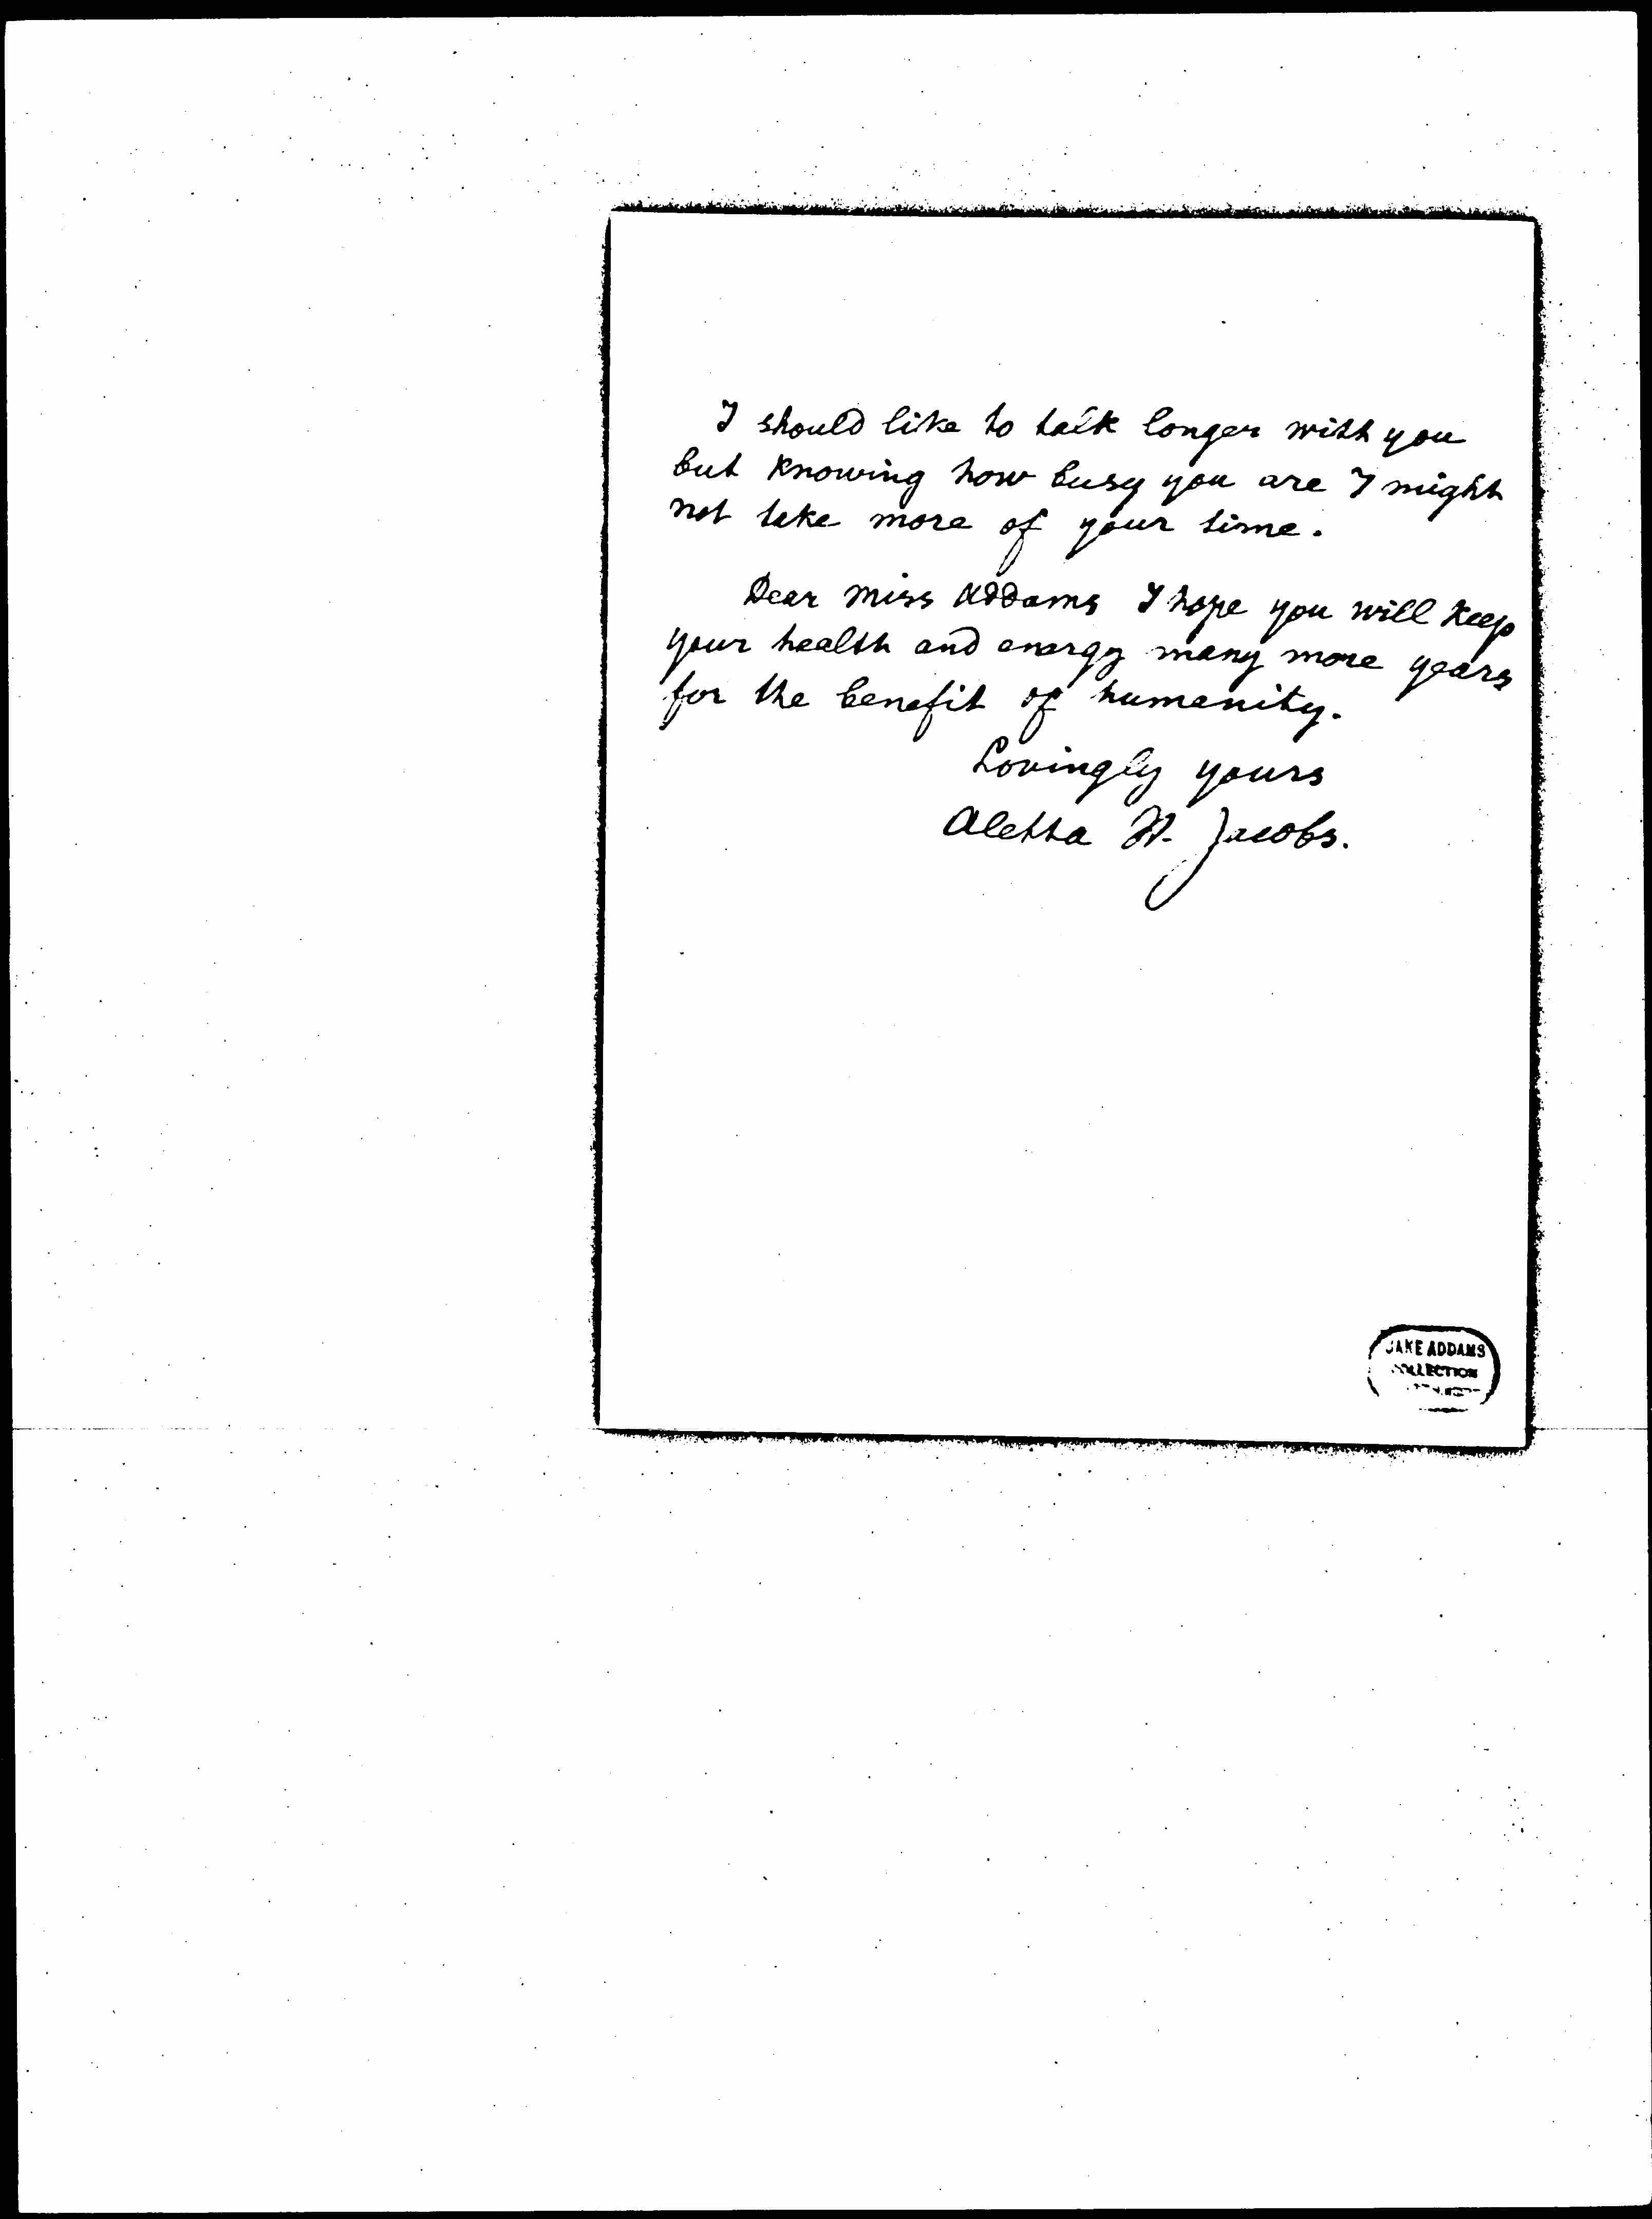 I should like to talk longer with you
but knowing how busy you are I might
not take more of your time.
Dear Miss Addams I hope you will keep
your health and energy many more years
for the benefit of humanity.
Lovingly yours
Aletta H. Jacobs.
JANE ADDAMS
COLLECTION